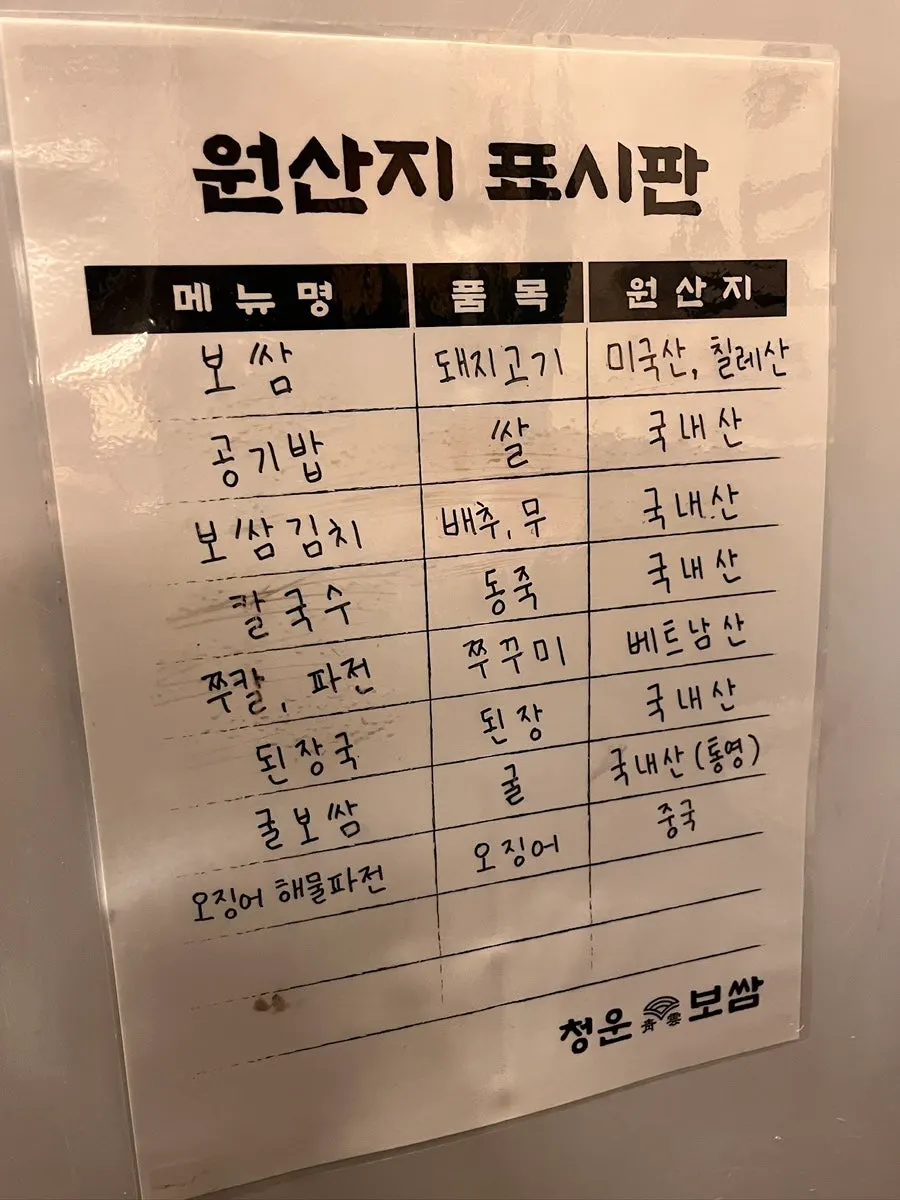 원산지 표시판
메뉴명 품목 원산지
보쌈 돼지고기 미국산, 칠레산
공기밥 쌀 국내산
보쌈김치 배추, 무 국내산
칼국수 동죽 국내산
쭈칼, 파전 쭈꾸미 베트남산
된장국 된장 국내산
굴보쌈 굴 국내산(통영)
오징어 해물파전 오징어 중국
청운 靑雲 보쌈